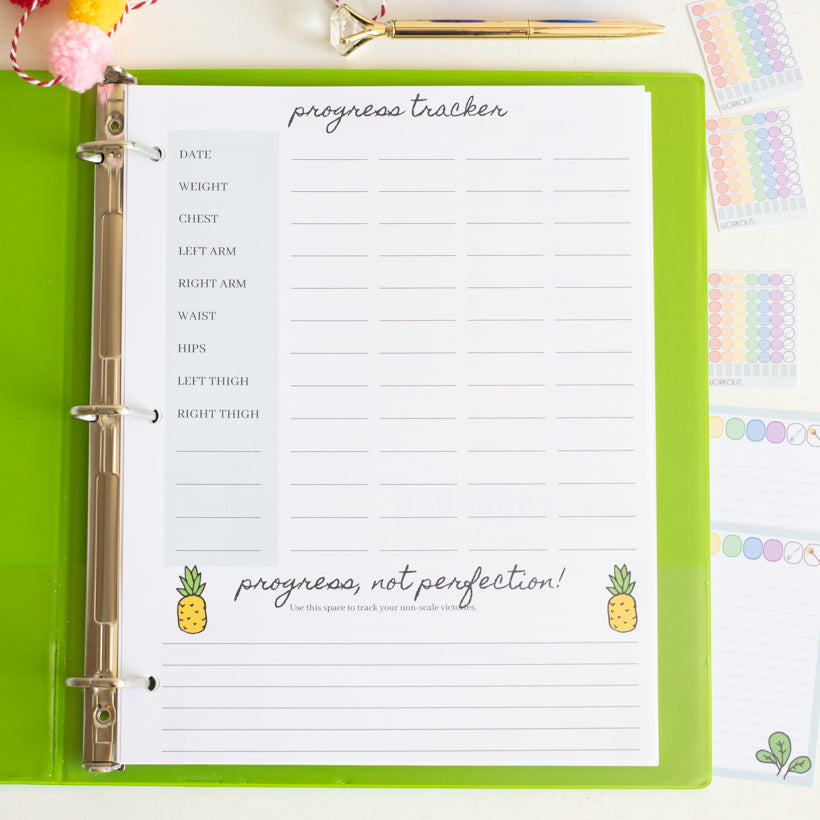 progress tracker
DATE
WEIGHT
CHEST
LEFT ARM
RIGHT ARM
WAIST
HIPS
LEFT THIGH
RIGHT THIGH
progress, not perfection!
Use this space to track your non-scale victories.
WORKOUT:
WORKOUT:
WORKOUT: